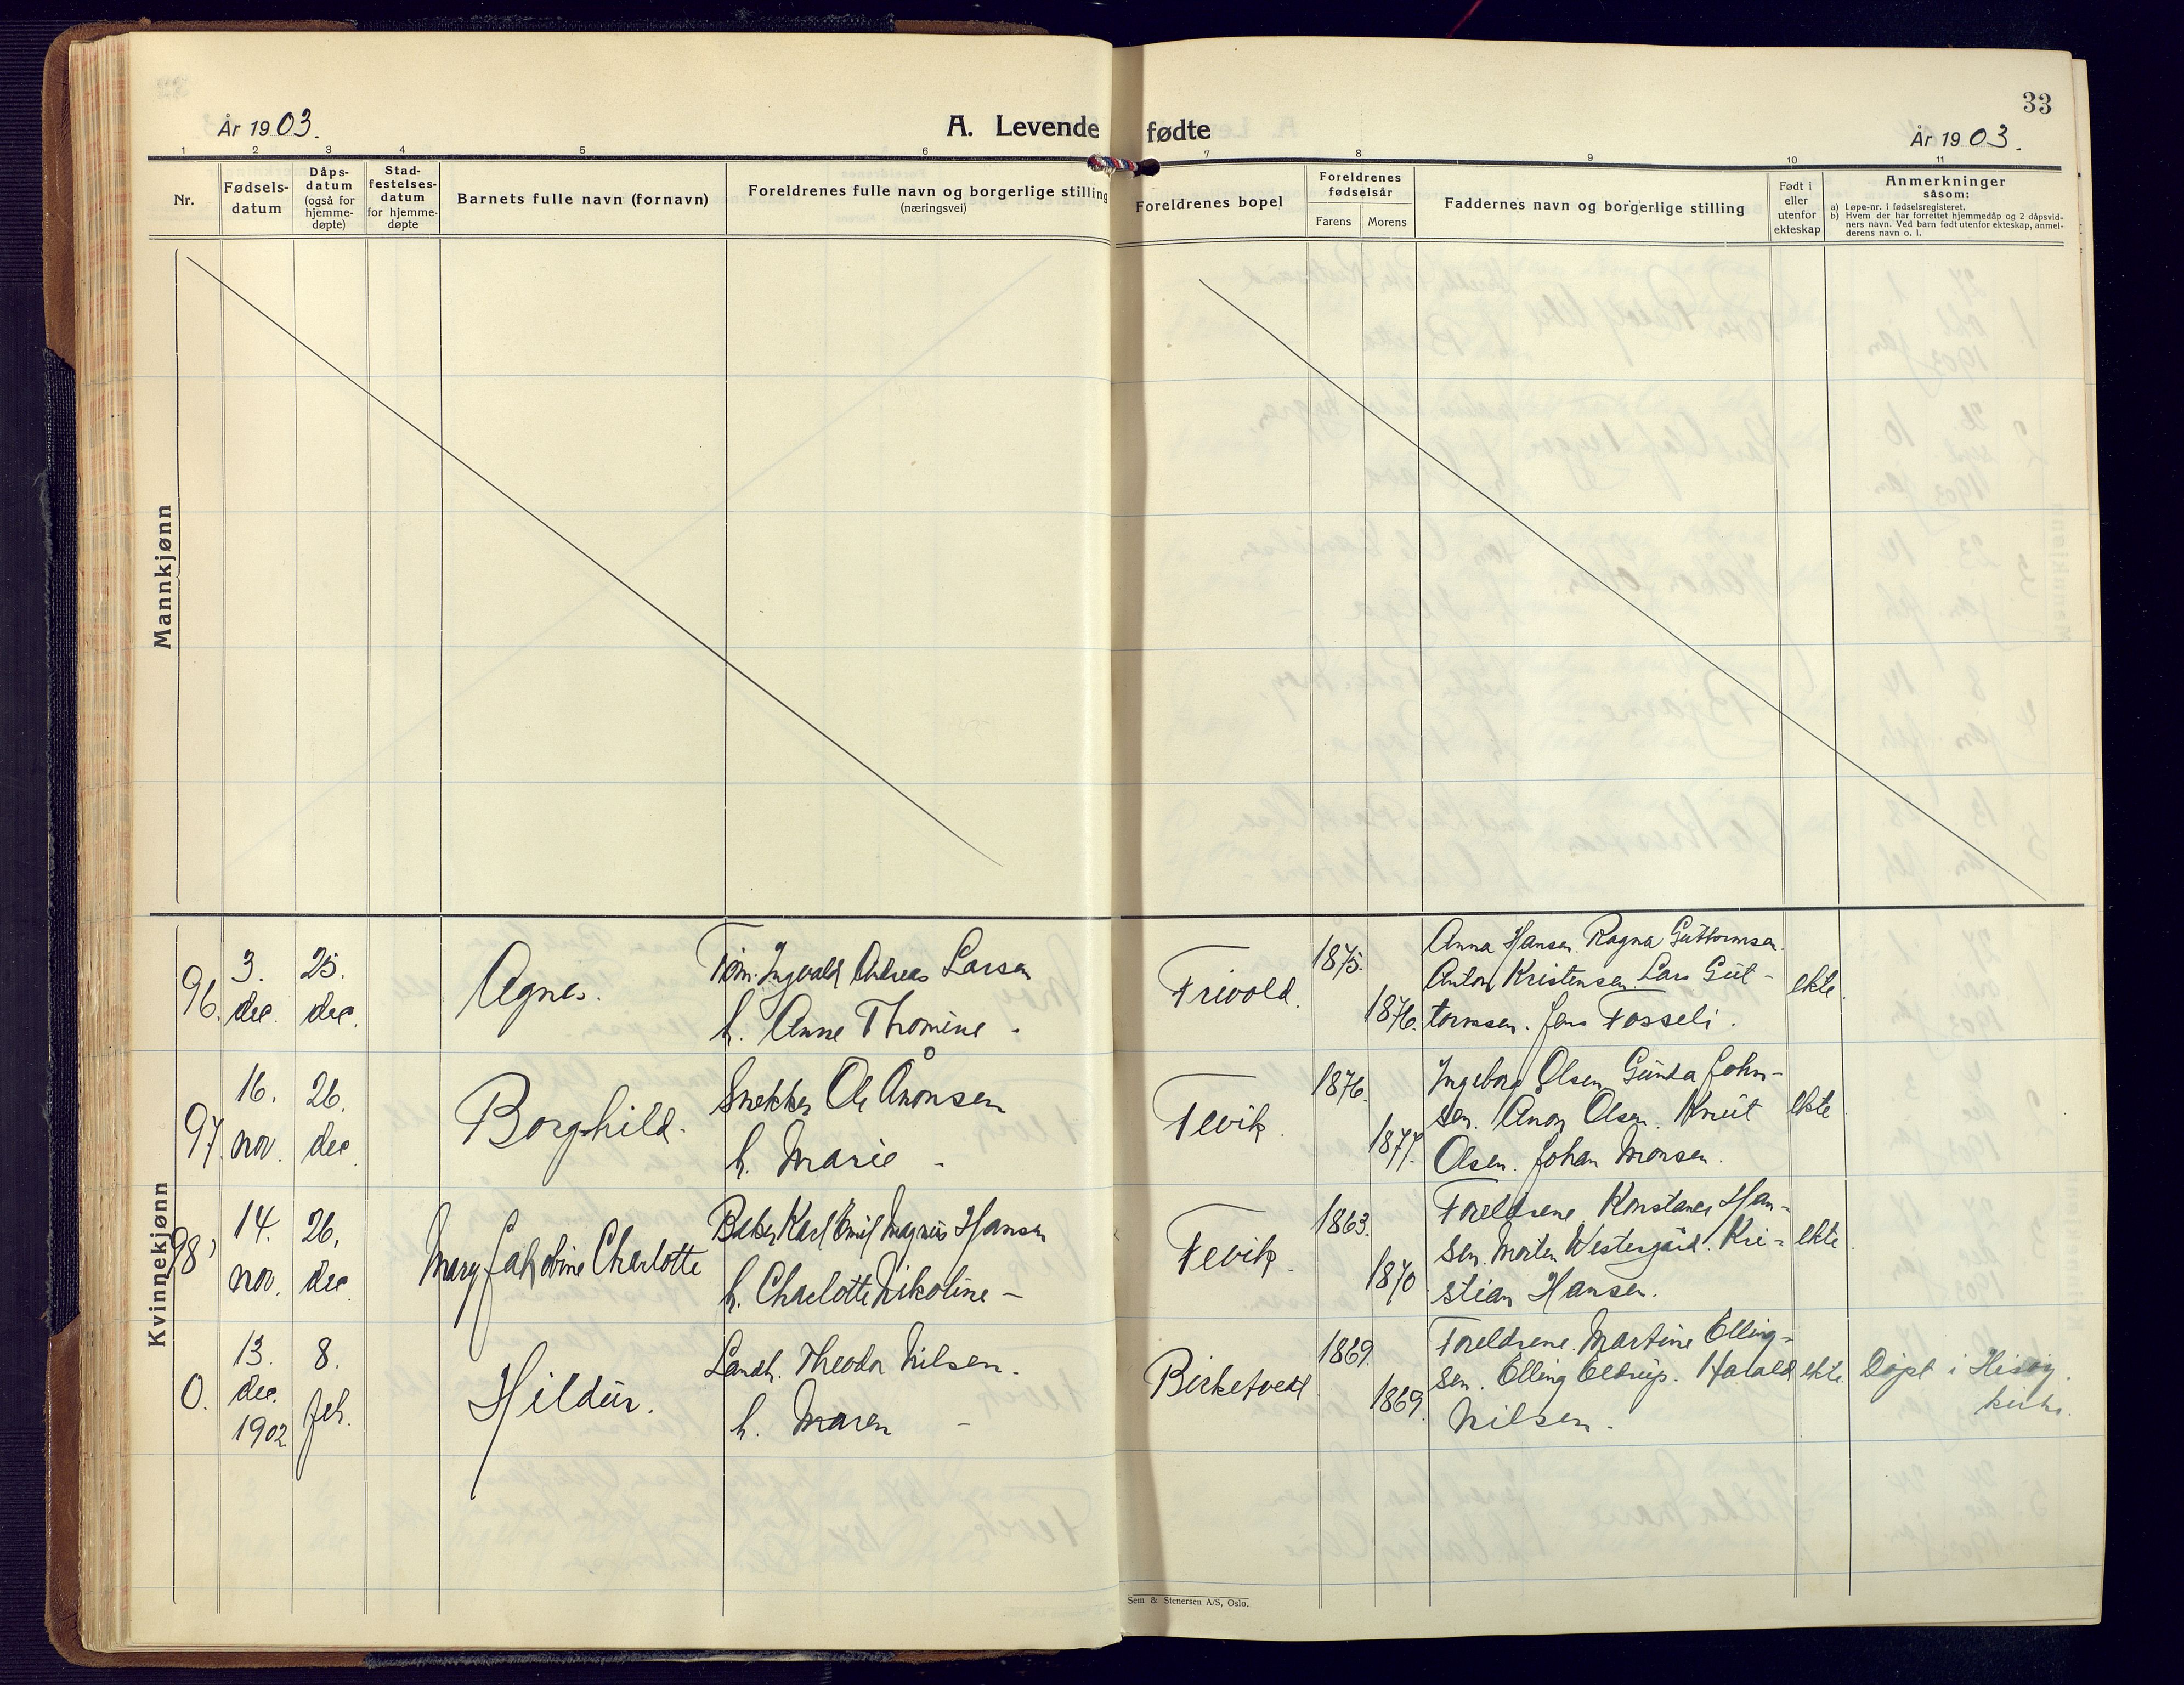 33
År 1903.
A. Levende fødte
År 1903.
1 2 3 4 5 6 7 8 9 10 11
Nr.
Fødsels-
datum
Dåps-
datum
(også for
hjemme-
døpte)
Stad-
festelses-
datum
for hjemme-
døpte
Barnets fulle navn (fornavn)
Foreldrenes fulle navn og borgerlige stilling
(næringsvei)
Foreldrenes bopel
Foreldrenes
fødselsår
Farens
Morens
Faddernes navn og borgerlige stilling
Født i
eller
utenfor
ekteskap
Anmerkninger
såsom:
a) Løpe-nr. i fødselsregisteret.
b) Hvem der har forrettet hjemmedåp og 2 dåpsvid-
ners navn. Ved barn født utenfor ekteskap, anmel-
derens navn o. l.
Mannkjønn
Kvinnekjønn
96.
3.
dec.
25.
dec.
Agnes.
Töm. Ingvald Andreas Larsen
h. Anne Thomine -
Frivold.
1875.
1876.
Anna Hansen. Ragna Guttormsen.
Anton Kristensen. Lars Gut-
tormsen. Jens Fosseli.
ekte.
97.
16.
nov.
26.
dec.
Borghild.
Snekker Ole Åmonsen
h. Marie -
Fevik.
1876.
1877.
Ingeborg Olsen. Gunda John-
sen. Anon Olsen. Knut
Olsen. Johan Monsen.
ekte
98
14.
nov.
26.
dec.
Mary Jakobine Charlotte
Baker Karl Emil Magnus Hansen
h. Charlotte Nikoline -
Fevik.
1863.
1870
Foreldrene. Konstance Han-
sen. Morten Westergård. Kri-
stian Hansen.
ekte
0.
13.
dec.
1902
8.
feb.
Hildur.
Landh. Theodor Nilsen.
h. Maren -
Birketvedt
1869.
1869.
Foreldrene. Martine Elling-
sen. Elling Eldrup. Harald
Nilsen.
ekte.
Döpt i Hisöy
kirke.
Sem & Stenersen A/S, Oslo.